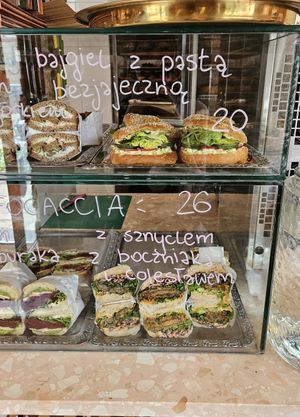 bajgiel z pastą
bezjajeczną
20
FOCACCIA: 26
z sznyclem
buraka z boczniak
i colesławem